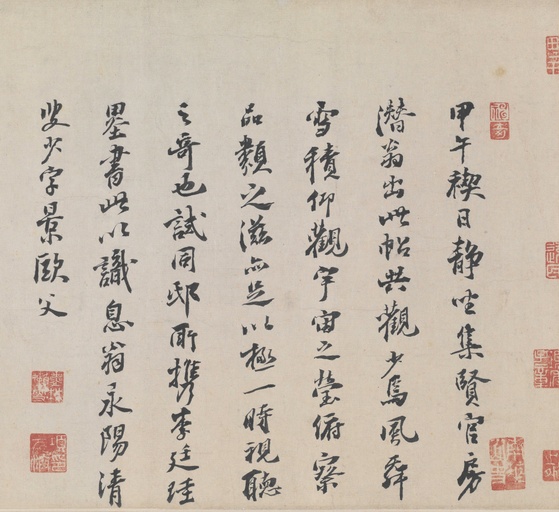 甲午稧日静坐集賢官房
濳翁出此帖共觀少焉風舞
雪積仰觀宇宙之瑩俯察
品類之滋亦足以極一時視聽
之奇也試同邸所携李廷珪
墨書此以識息翁永陽清
叟少字景歐父